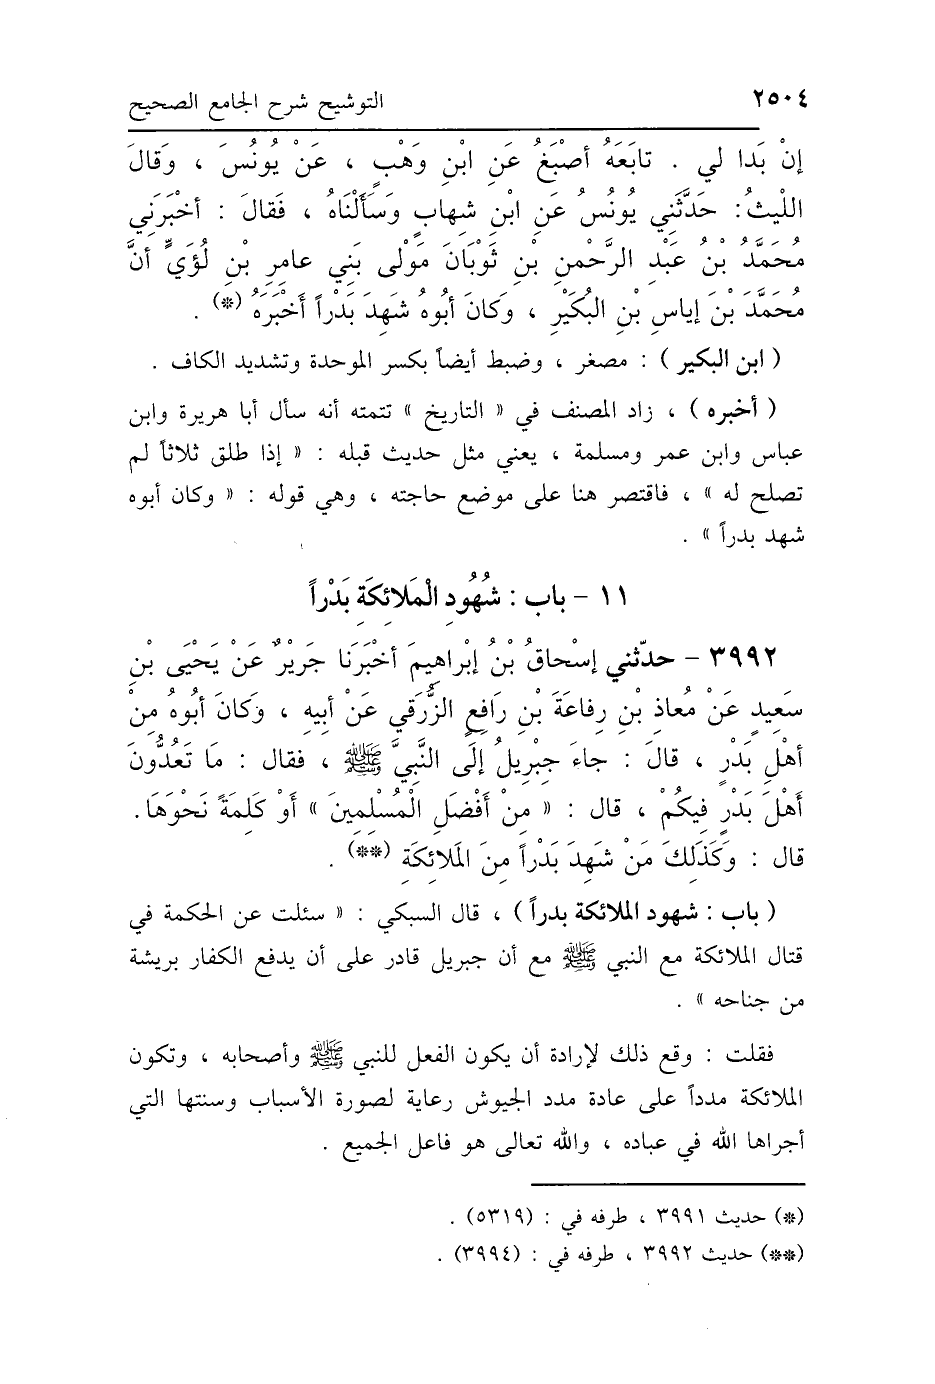 ٢٥٠٤ التوشيح شرح الجامع الصحيح
إنْ بَدا لي . تابَعَهُ أصْبَغُ عَنِ ابْنِ وَهْبٍ ، عَنْ يُونُسَ ، وَقالَ
الليثُ: حَدَّثَنِي يُونُسُ عَنِ ابْنِ شِهابٍ وَسَأَلْنَاهُ ، فَقالَ : أخْبَرَنِي
مُحَمَّدُ بْنُ عَبْدِ الرَّحْمنِ بْنِ ثَوْبَانَ مَوْلَى بَنِي عامِرِ بْنِ لُؤَيٍّ أنَّ
مُحَمَّدَ بْنَ إياسِ بْنِ البُكَيْرِ ، وَكانَ أبُوهُ شَهِدَ بَدْراً أَخْبَرَهُ (*) .
( ابن البكير ) : مصغر ، وضبط أيضاً بكسر الموحدة وتشديد الكاف .
( أخبره ) ، زاد المصنف في « التاريخ » تتمته أنه سأل أبا هريرة وابن
عباس وابن عمر ومسلمة ، يعني مثل حديث قبله : « إذا طلق ثلاثاً لم
تصلح له » ، فاقتصر هنا على موضع حاجته ، وهي قوله : « وكان أبوه
شهد بدراً » .
١١ - باب : شُهُودِ الْمَلائِكَةِ بَدْراً
٣٩٩٢ - حدّثني إسْحاقُ بْنُ إبْراهِيمَ أخْبَرَنَا جَرِيرٌ عَنْ يَحْيَى بْنِ
سَعِيدٍ عَنْ مُعاذِ بْنِ رِفاعَةَ بْنِ رَافِعٍ الزُّرَقِي عَنْ أبِيهِ ، وَكانَ أبُوهُ مِنْ
أهْلِ بَدْرٍ ، قالَ : جاءَ جِبْرِيلُ إلَى النَّبِيِّ ﷺ ، فقال : مَا تَعُدُّونَ
أهْلَ بَدْرٍ فِيكُمْ ، قال : « مِنْ أَفْضَلِ الْمُسْلِمِينَ » أوْ كَلِمَةً نَحْوَهَا .
قال : وَكَذَلِكَ مَنْ شَهِدَ بَدْراً مِنَ المَلائِكَةِ (**) .
( باب : شهود الملائكة بدراً ) ، قال السبكي : « سئلت عن الحكمة في
قتال الملائكة مع النبي ﷺ مع أن جبريل قادر على أن يدفع الكفار بريشة
من جناحه » .
فقلت : وقع ذلك لإرادة أن يكون الفعل للنبي ﷺ وأصحابه ، وتكون
الملائكة مدداً على عادة مدد الجيوش رعاية لصورة الأسباب وسنتها التي
أجراها الله في عباده ، والله تعالى هو فاعل الجميع .
(*) حديث ٣٩٩١ ، طرفه في : (٥٣١٩) .
(**) حديث ٣٩٩٢ ، طرفه في : (٣٩٩٤) .